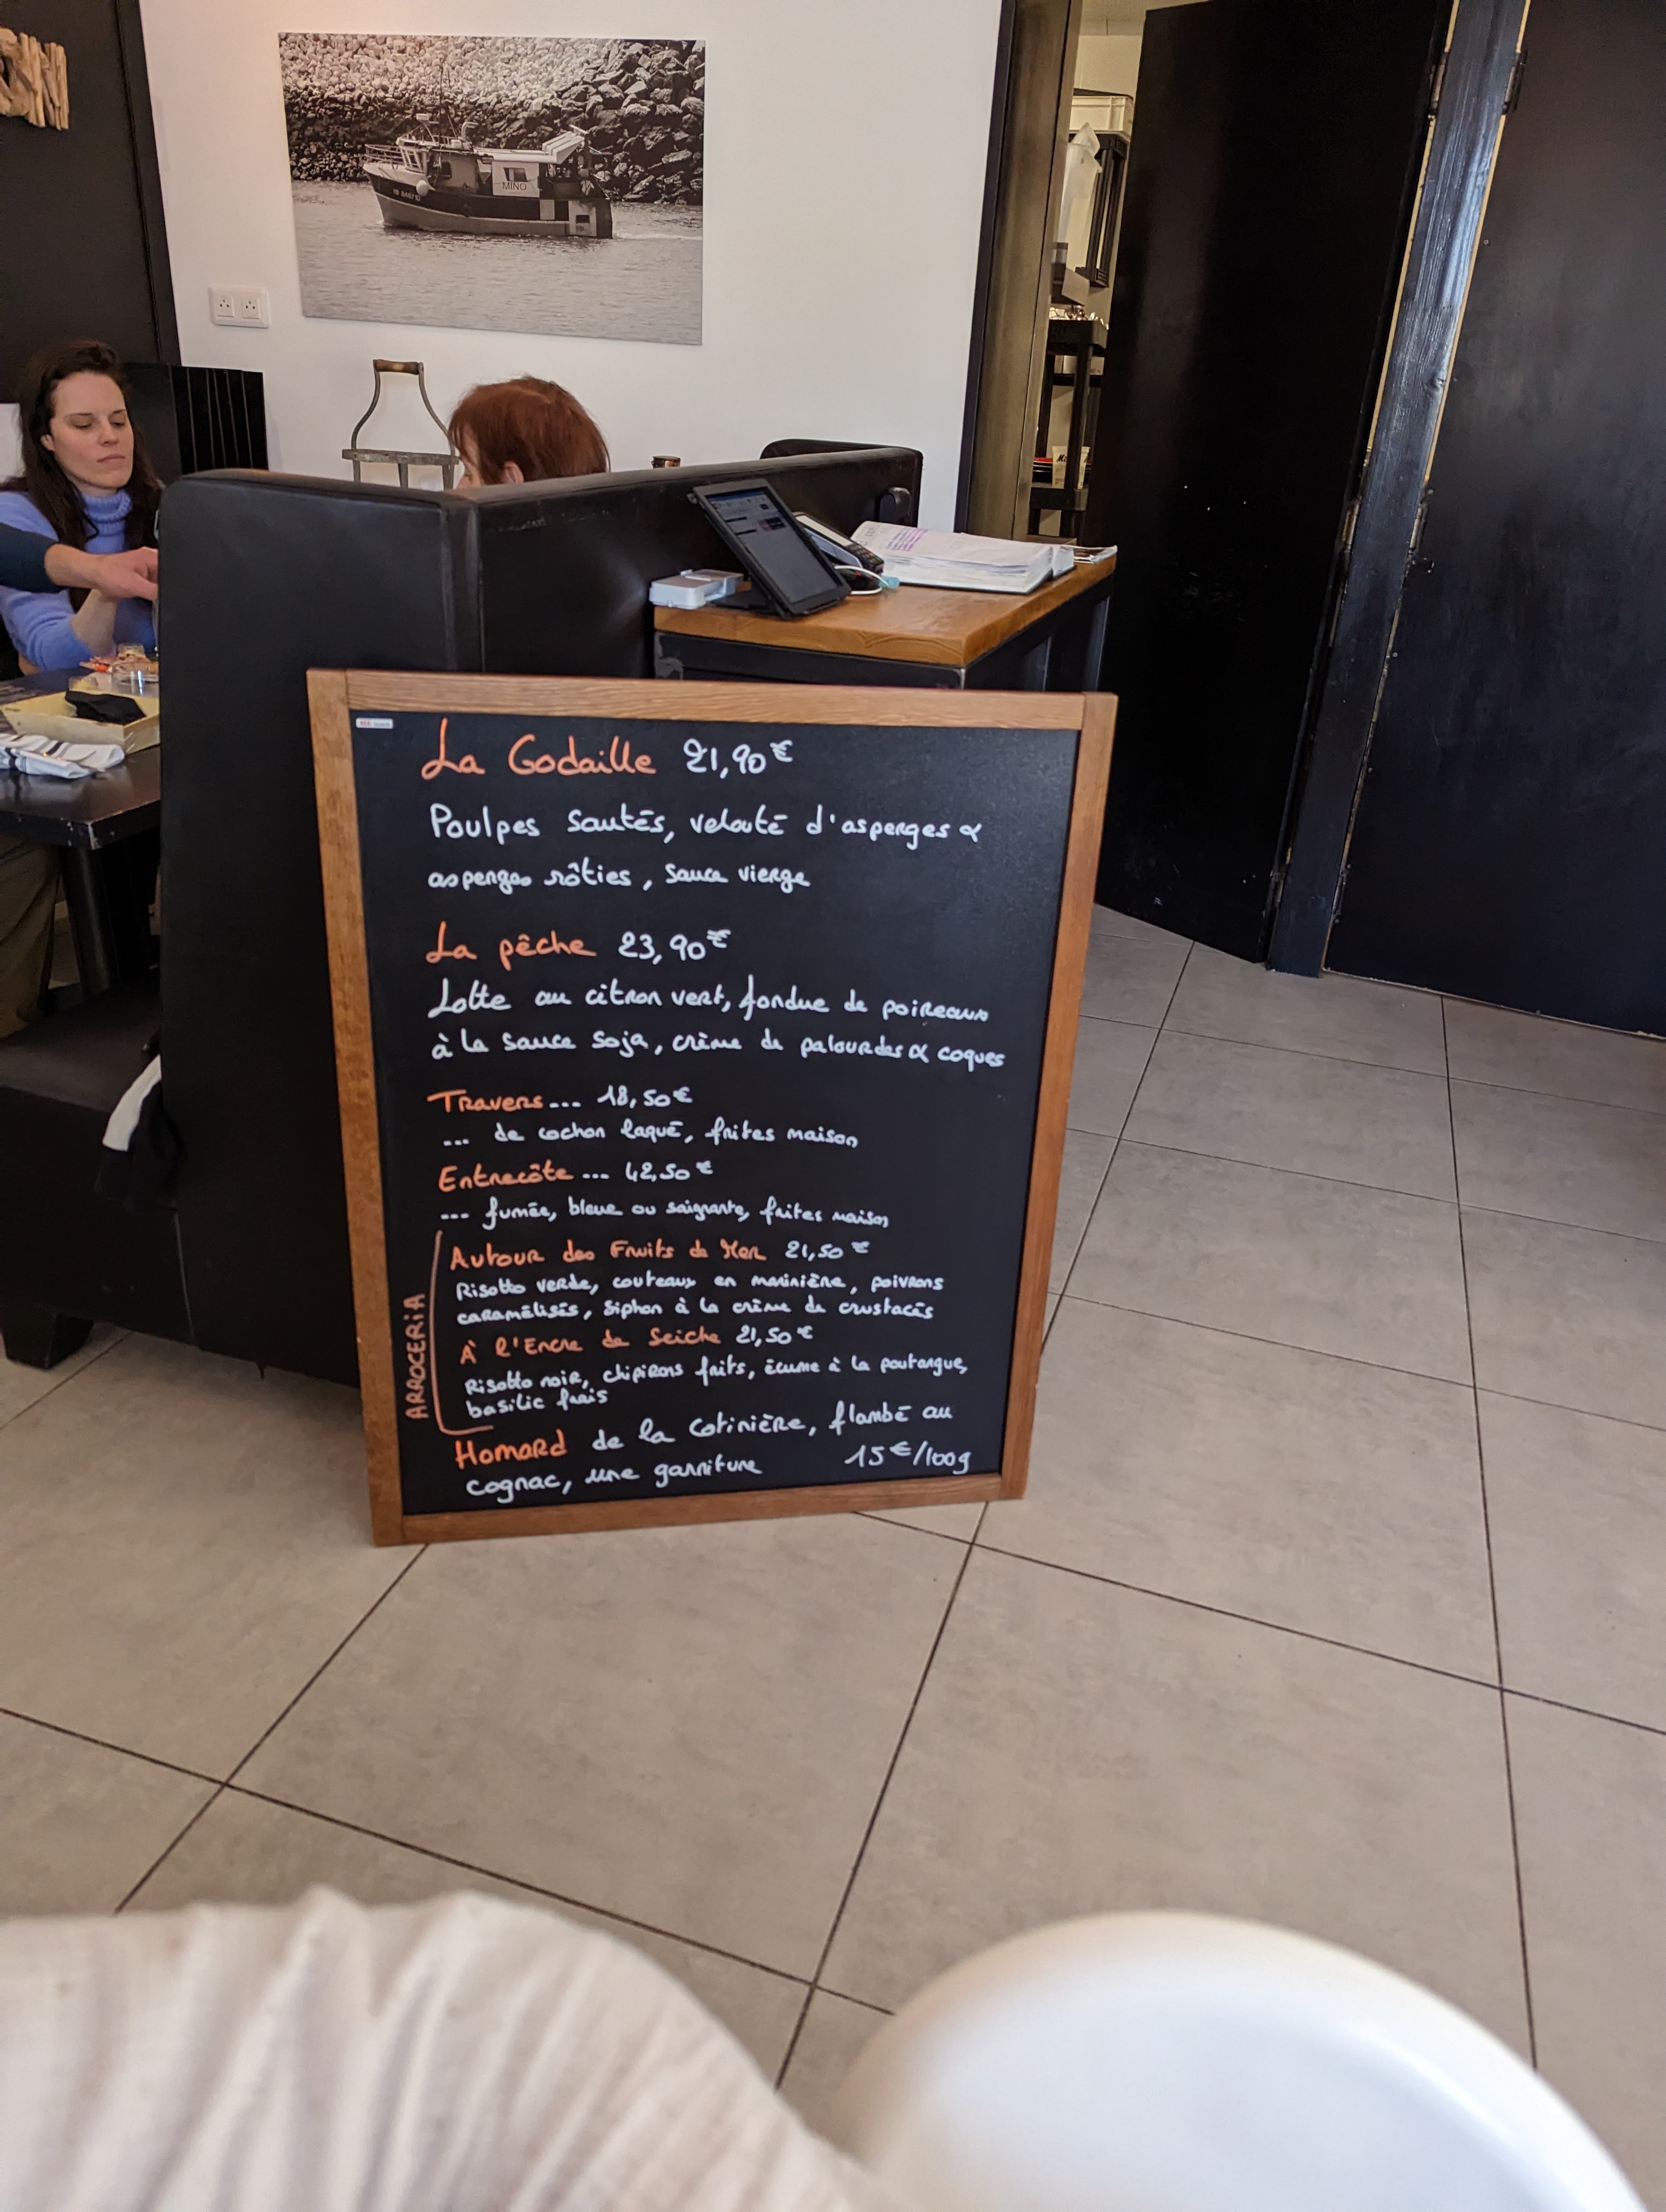 MINO
La Godaille 21,90€
Poulpes sautés, velouté d'asperges &
asperges rôties, sauce vierge
La pêche 23,90€
Lotte au citron vert, fondue de poireaux
à la sauce soja, crème de palourdes & coques
Travers... 18,50€
... de cochon laqué, frites maison
Entrecôte... 42,50€
... fumée, bleue ou saignante, frites maison
ARROCERiA
Autour des Fruits de Mer 21,50€
Risotto verde, couteaux en marinière, poivrons
caramélisés, siphon à la crème de crustacés
À l'Encre de Seiche 21,50€
Risotto noir, chipirons frits, écume à la poutargue,
basilic frais
Homard de la Cotinière, flambé au
cognac, une garniture 15€/100g